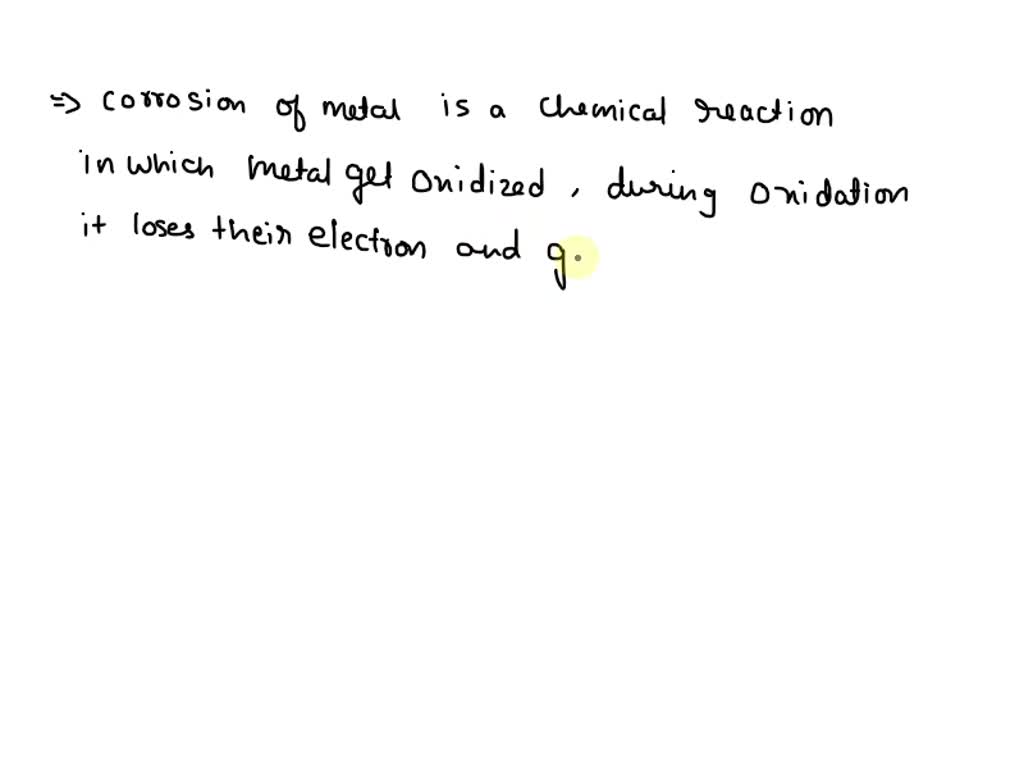 => corrosion of metal is a chemical reaction
in which metal get oxidized, during oxidation
it loses their electron and g